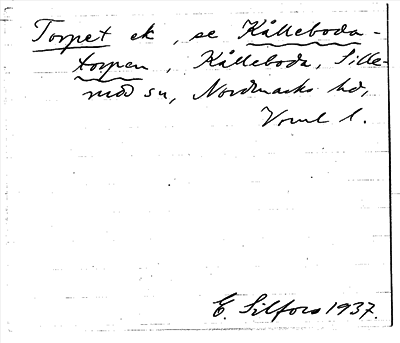 Torpet ek, se Kålleboda-
torpen, Kålleboda, Sille-
rud sn, Nordmarks hd,
Vrml l.
E. Silfors 1937.